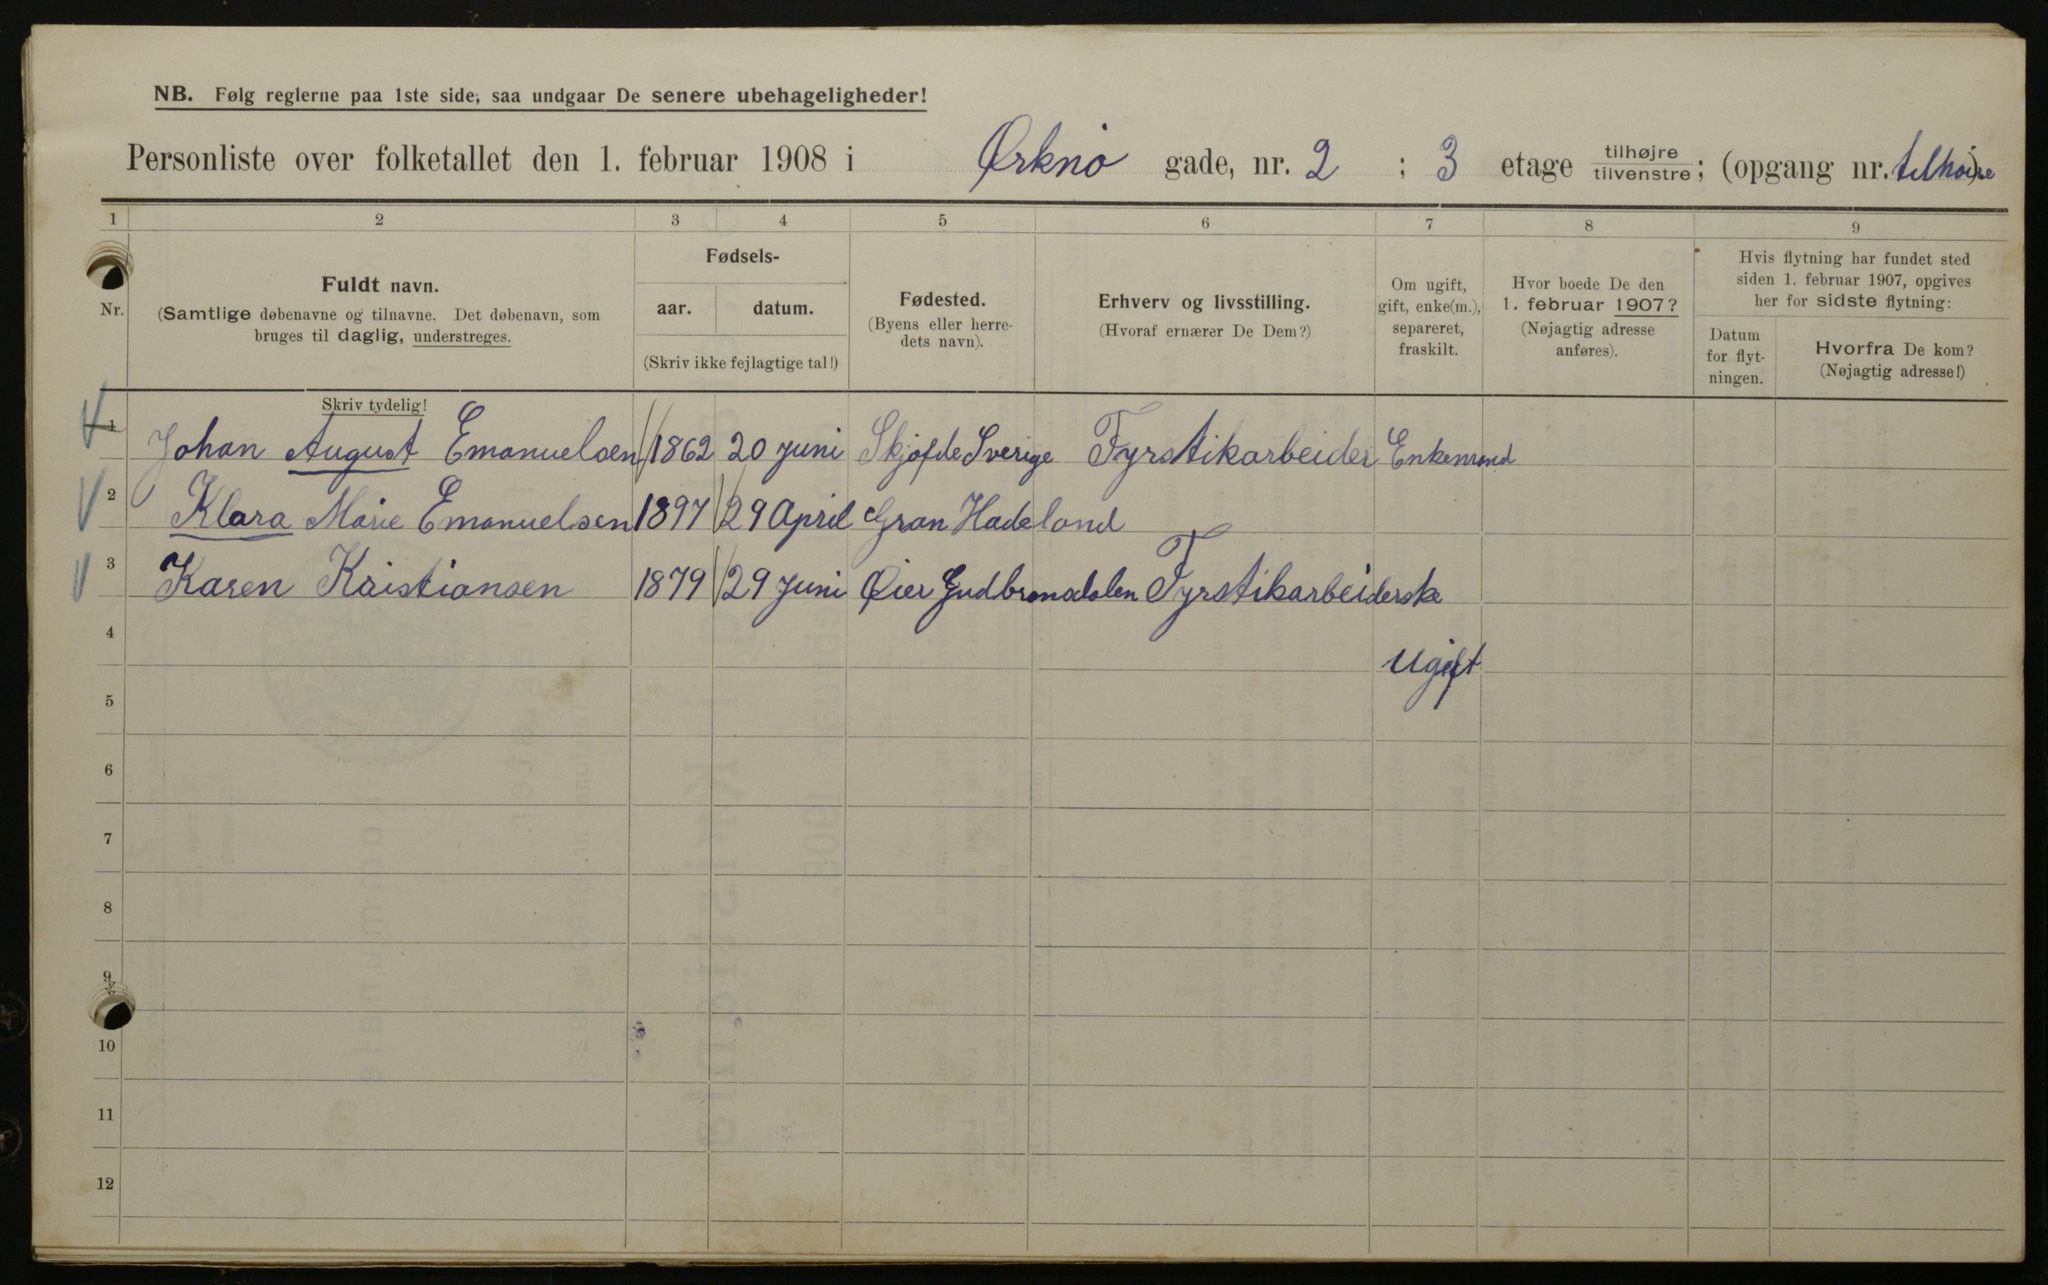 NB. Følg reglerne paa 1ste side, saa undgaar De senere ubehageligheder!
Personliste over folketallet den 1. februar 1908 i Ørknø gade, nr. 2 ; 3 etage tilhøjre / tilvenstre ; (opgang nr. tilhøire )
1 2 3 4 5 6 7 8 9
Nr.
Fuldt navn.
(Samtlige døbenavne og tilnavne. Det døbenavn, som
bruges til daglig, understreges.
Skriv tydelig!
Fødsels-
aar. datum.
(Skriv ikke fejlagtige tal!)
Fødested.
(Byens eller herre-
dets navn).
Erhverv og livsstilling.
(Hvoraf ernærer De Dem?)
Om ugift,
gift, enke(m.),
separeret,
fraskilt.
Hvor boede De den
1. februar 1907?
(Nøjagtig adresse
anføres).
Hvis flytning har fundet sted
siden 1. februar 1907, opgives
her for sidste flytning:
Datum
for flyt-
ningen.
Hvorfra De kom?
(Nøjagtig adresse!)
1 Johan August Emanuelsen 1862 20 Juni Skjøfde Sverige Fyrstikarbeider Enkemand
2 Klara Marie Emanuelsen 1897 29 April Gran Hadeland
3 Karen Kristiansen 1879 29 Juni Øier Gudbransdalen Fyrstikarbeiderske
4 ugift
5
6
7
8
9
10
11
12